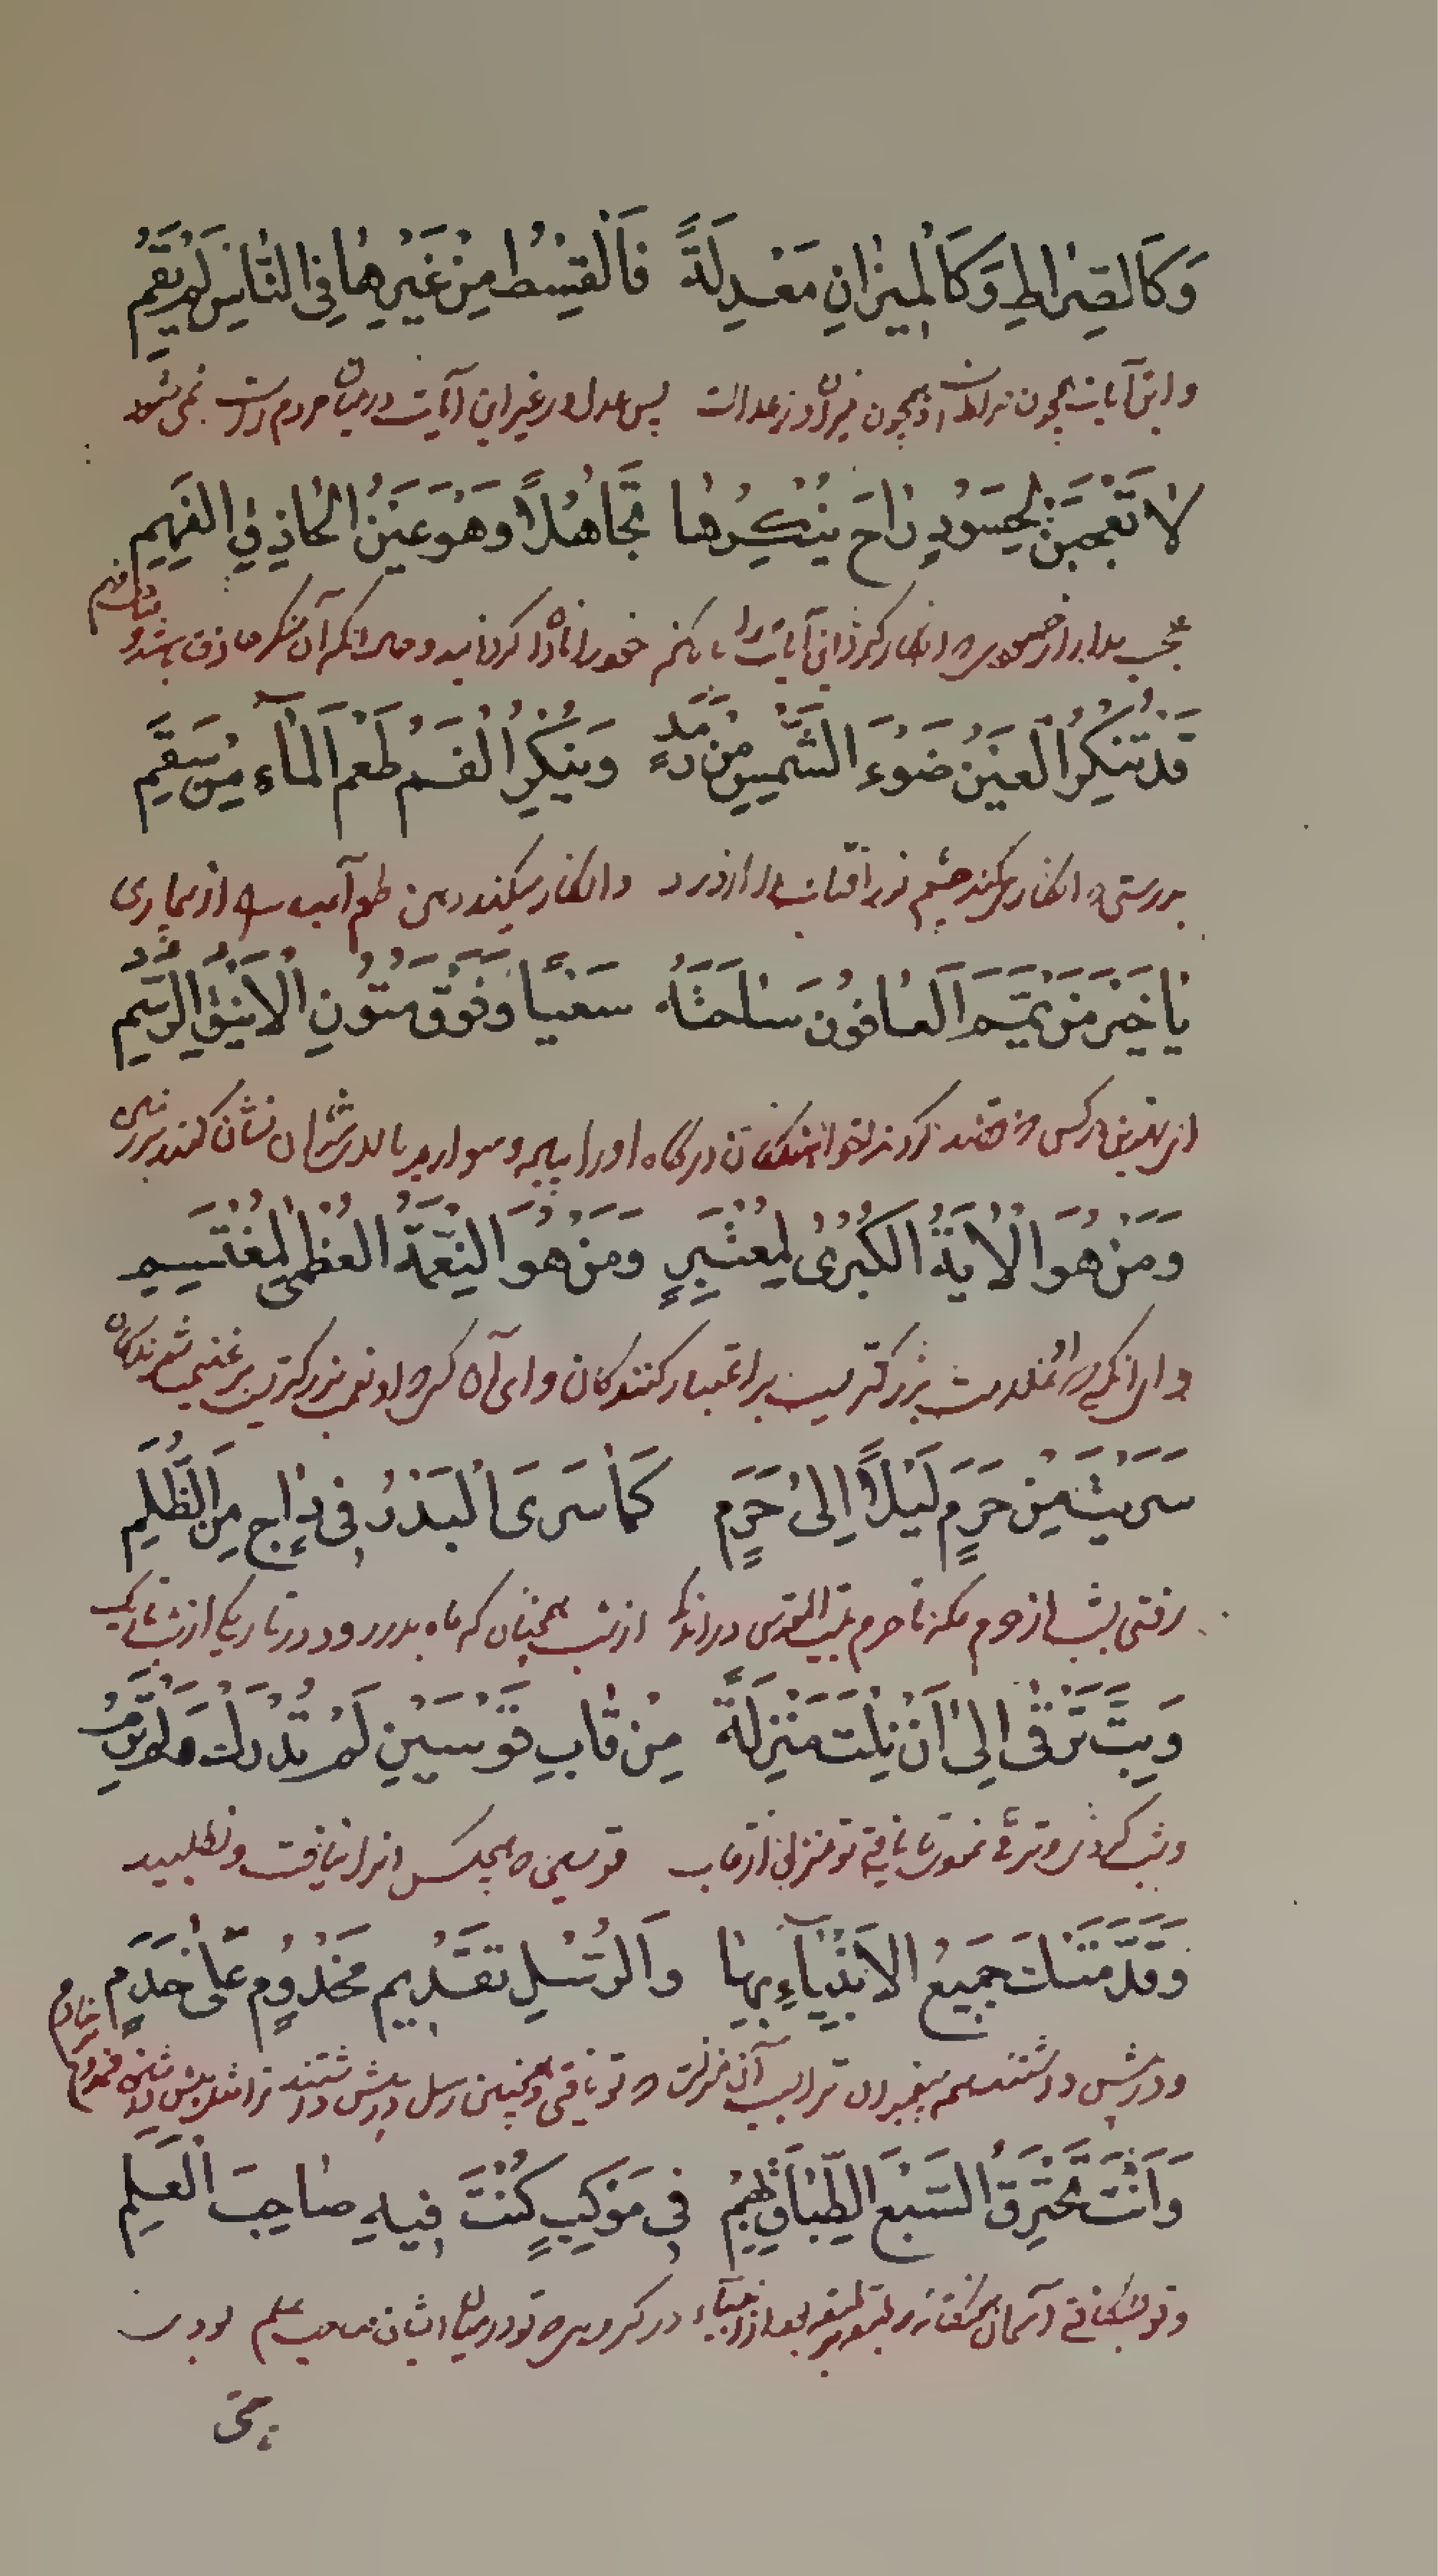 وَكَالصِّرَاطِ وَكَالْمِيزَانِ مَعْدِلَةً فَالْقِسْطُ مِنْ غَيْرِهَا فِي النَّاسِ لَمْ يَقُمِ
و این آیات همچون صراط است و همچون میزان از عدالت پس عدل در غیر این آیات در میان مردم راست نمی‌شود
لَا تَعْجَبَنْ لِحَسُودٍ رَاحَ يُنْكِرُهَا تَجَاهُلًا وَهُوَ عَيْنُ الْحَاذِقِ الْفَهِمِ
عجب مدار از حسودی انکار کردن این آیات را خود را نادان کردانید و حال انکه آن منکر حاذق باشد و
قَدْ تُنْكِرُ الْعَيْنُ ضَوْءَ الشَّمْسِ مِنْ رَمَدٍ وَيُنْكِرُ الْفَمُ طَعْمَ الْمَاءِ مِنْ سَقَمِ
بدرستی انکار میکند چشم نور افتاب را از درد و انکار میکند دهن طعم آب از بیماری
يَا خَيْرَ مَنْ يَمَّمَ الْعَافُونَ سَاحَتَهُ سَعْيًا وَفَوْقَ مُتُونِ الْأَيْنُقِ الرُّسُمِ
کردند خواهندکان درکاه او را پیاده و سوار بر بالای شتران نشان کنند بر زمین
وَمَنْ هُوَ الْآيَةُ الْكُبْرَى لِمُعْتَبِرٍ وَمَنْ هُوَ النِّعْمَةُ الْعُظْمَى لِمُغْتَنِمِ
بزرکتر است بر اعتبار کنندکان و ای آن کس او نعمت بزرکتر است بر غنیمت شمرندکان
سَرَيْتَ مِنْ حَرَمٍ لَيْلًا إِلَى حَرَمٍ كَمَا سَرَى الْبَدْرُ فِي دَاجٍ مِنَ الظُّلَمِ
رفتی بشب از حرم مکه تا حرم بیت المقدس در اندک از شب همچنان که ماه بدر رود در تاریکی از شب تاریک
وَبِتَّ تَرْقَى إِلَى أَنْ نِلْتَ مَنْزِلَةً مِنْ قَابِ قَوْسَيْنِ لَمْ تُدْرَكْ وَلَمْ تُرَمِ
و شب کردی و ترقی نمودی تا یافتی تو منزلی از قاب قوسین هیچکس انرا نیافت و نطلبید
وَقَدَّمَتْكَ جَمِيعُ الْأَنْبِيَاءِ بِهَا وَالرُّسْلِ تَقْدِيمَ مَخْدُومٍ عَلَى خَدَمِ
و در پیش داشتند همه پیغمبران ترا بسبب آن منزلت تو یافتی و همچنین رسل در پیش داشتند ترا مثل پیش داشتن مخدوم
وَأَنْتَ تَخْتَرِقُ السَّبْعَ الطِّبَاقَ بِهِمْ فِي مَوْكِبٍ كُنْتَ فِيهِ صَاحِبَ الْعَلَمِ
و تو بشکافتی آسمان هفتکانه در کروهی تو در میان ایشان صاحب علم بودی
حتی